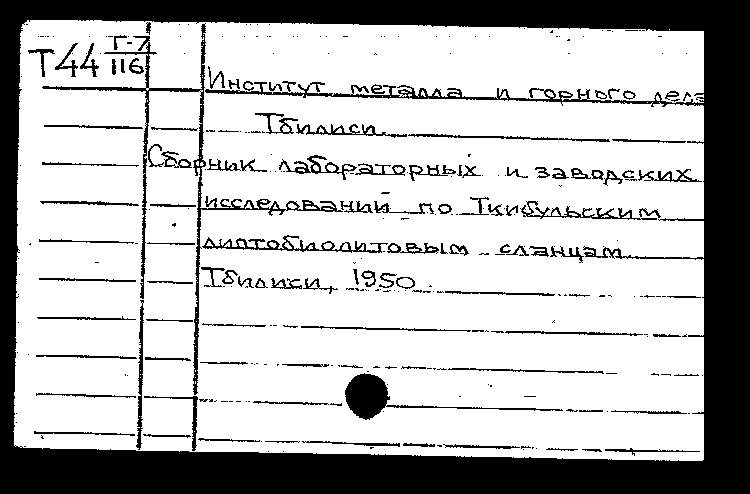 Т44 Т-7
116
Институт металла и горного дела
Тбилиси.
Сборник лабораторных и заводских
исследований по Ткибульским
липтобиолитовым сланцам
Тбилиси, 1950.